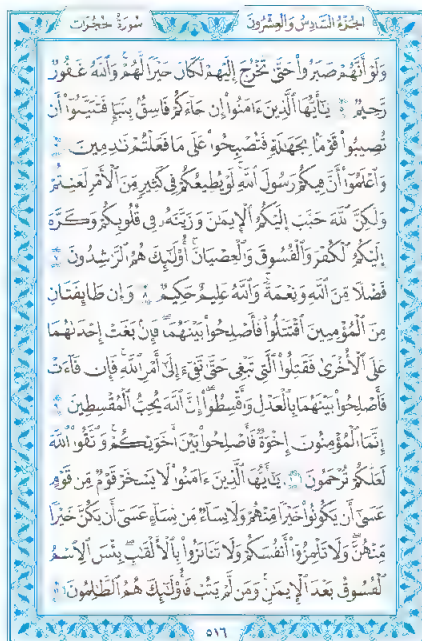 الجزء السادس والعشرون
سورة حجرات
وَلَوْ أَنَّهُمْ صَبَرُوا۟ حَتَّىٰ تَخْرُجَ إِلَيْهِمْ لَكَانَ خَيْرًا لَّهُمْ وَٱللَّهُ غَفُورٌ
رَّحِيمٌ ۝٥ يَـٰٓأَيُّهَا ٱلَّذِينَ ءَامَنُوٓا۟ إِن جَآءَكُمْ فَاسِقٌۢ بِنَبَإٍ فَتَبَيَّنُوٓا۟ أَن
تُصِيبُوا۟ قَوْمًۢا بِجَهَـٰلَةٍ فَتُصْبِحُوا۟ عَلَىٰ مَا فَعَلْتُمْ نَـٰدِمِينَ ۝٦
وَٱعْلَمُوٓا۟ أَنَّ فِيكُمْ رَسُولَ ٱللَّهِ لَوْ يُطِيعُكُمْ فِى كَثِيرٍ مِّنَ ٱلْأَمْرِ لَعَنِتُّمْ
وَلَـٰكِنَّ ٱللَّهَ حَبَّبَ إِلَيْكُمُ ٱلْإِيمَـٰنَ وَزَيَّنَهُۥ فِى قُلُوبِكُمْ وَكَرَّهَ
إِلَيْكُمُ ٱلْكُفْرَ وَٱلْفُسُوقَ وَٱلْعِصْيَانَ أُو۟لَـٰٓئِكَ هُمُ ٱلرَّٰشِدُونَ ۝٧
فَضْلًا مِّنَ ٱللَّهِ وَنِعْمَةً وَٱللَّهُ عَلِيمٌ حَكِيمٌ ۝٨ وَإِن طَآئِفَتَانِ
مِنَ ٱلْمُؤْمِنِينَ ٱقْتَتَلُوا۟ فَأَصْلِحُوا۟ بَيْنَهُمَا فَإِنۢ بَغَتْ إِحْدَىٰهُمَا
عَلَى ٱلْأُخْرَىٰ فَقَـٰتِلُوا۟ ٱلَّتِى تَبْغِى حَتَّىٰ تَفِىٓءَ إِلَىٰٓ أَمْرِ ٱللَّهِ فَإِن فَآءَتْ
فَأَصْلِحُوا۟ بَيْنَهُمَا بِٱلْعَدْلِ وَأَقْسِطُوٓا۟ إِنَّ ٱللَّهَ يُحِبُّ ٱلْمُقْسِطِينَ ۝٩
إِنَّمَا ٱلْمُؤْمِنُونَ إِخْوَةٌ فَأَصْلِحُوا۟ بَيْنَ أَخَوَيْكُمْ وَٱتَّقُوا۟ ٱللَّهَ
لَعَلَّكُمْ تُرْحَمُونَ ۝١٠ يَـٰٓأَيُّهَا ٱلَّذِينَ ءَامَنُوا۟ لَا يَسْخَرْ قَوْمٌ مِّن قَوْمٍ
عَسَىٰٓ أَن يَكُونُوا۟ خَيْرًا مِّنْهُمْ وَلَا نِسَآءٌ مِّن نِّسَآءٍ عَسَىٰٓ أَن يَكُنَّ خَيْرًا
مِّنْهُنَّ وَلَا تَلْمِزُوٓا۟ أَنفُسَكُمْ وَلَا تَنَابَزُوا۟ بِٱلْأَلْقَـٰبِ بِئْسَ ٱلِٱسْمُ
ٱلْفُسُوقُ بَعْدَ ٱلْإِيمَـٰنِ وَمَن لَّمْ يَتُبْ فَأُو۟لَـٰٓئِكَ هُمُ ٱلظَّـٰلِمُونَ ۝١١
٥١٦